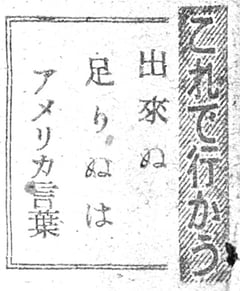 これで行かう
出來ぬ
足りぬは
アメリカ言葉